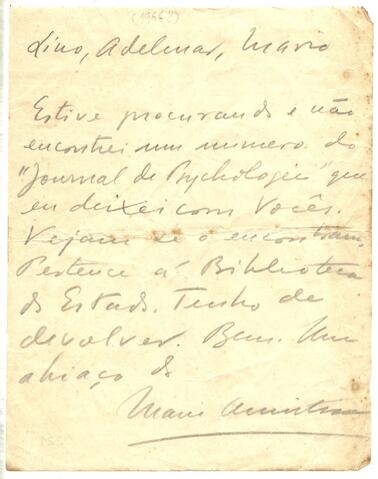 (1966?)
Lino, Adelmar, Mario
Estive procurando e não
encontrei um numero do
"Journal de Psychologie" que
eu deixei com Vocês.
Vejam se o encontram.
Pertence á Biblioteca
do Estado. Tenho de
devolver. Bem. Um
abraço do
Mario